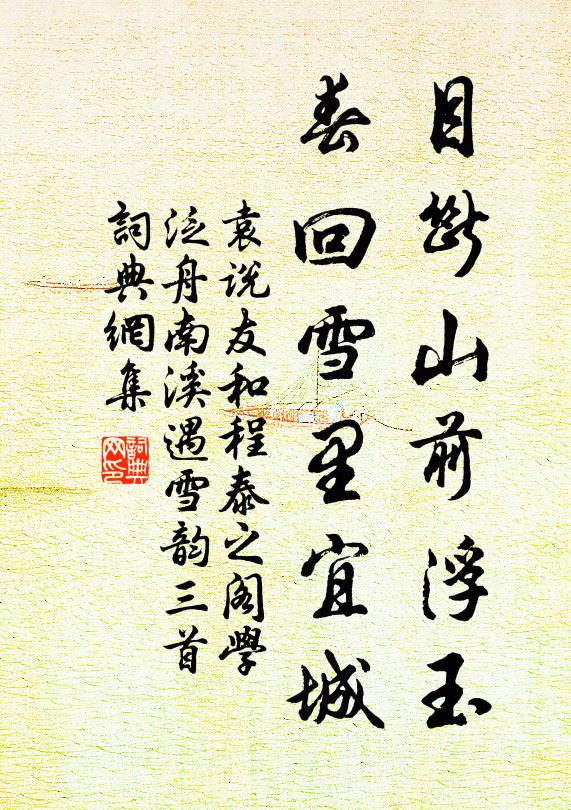 目斷山前浮玉
春回雪里宜城
袁说友和程泰之阁學
泛舟南溪遇雪韵三首
詞典網集
詞典
网印